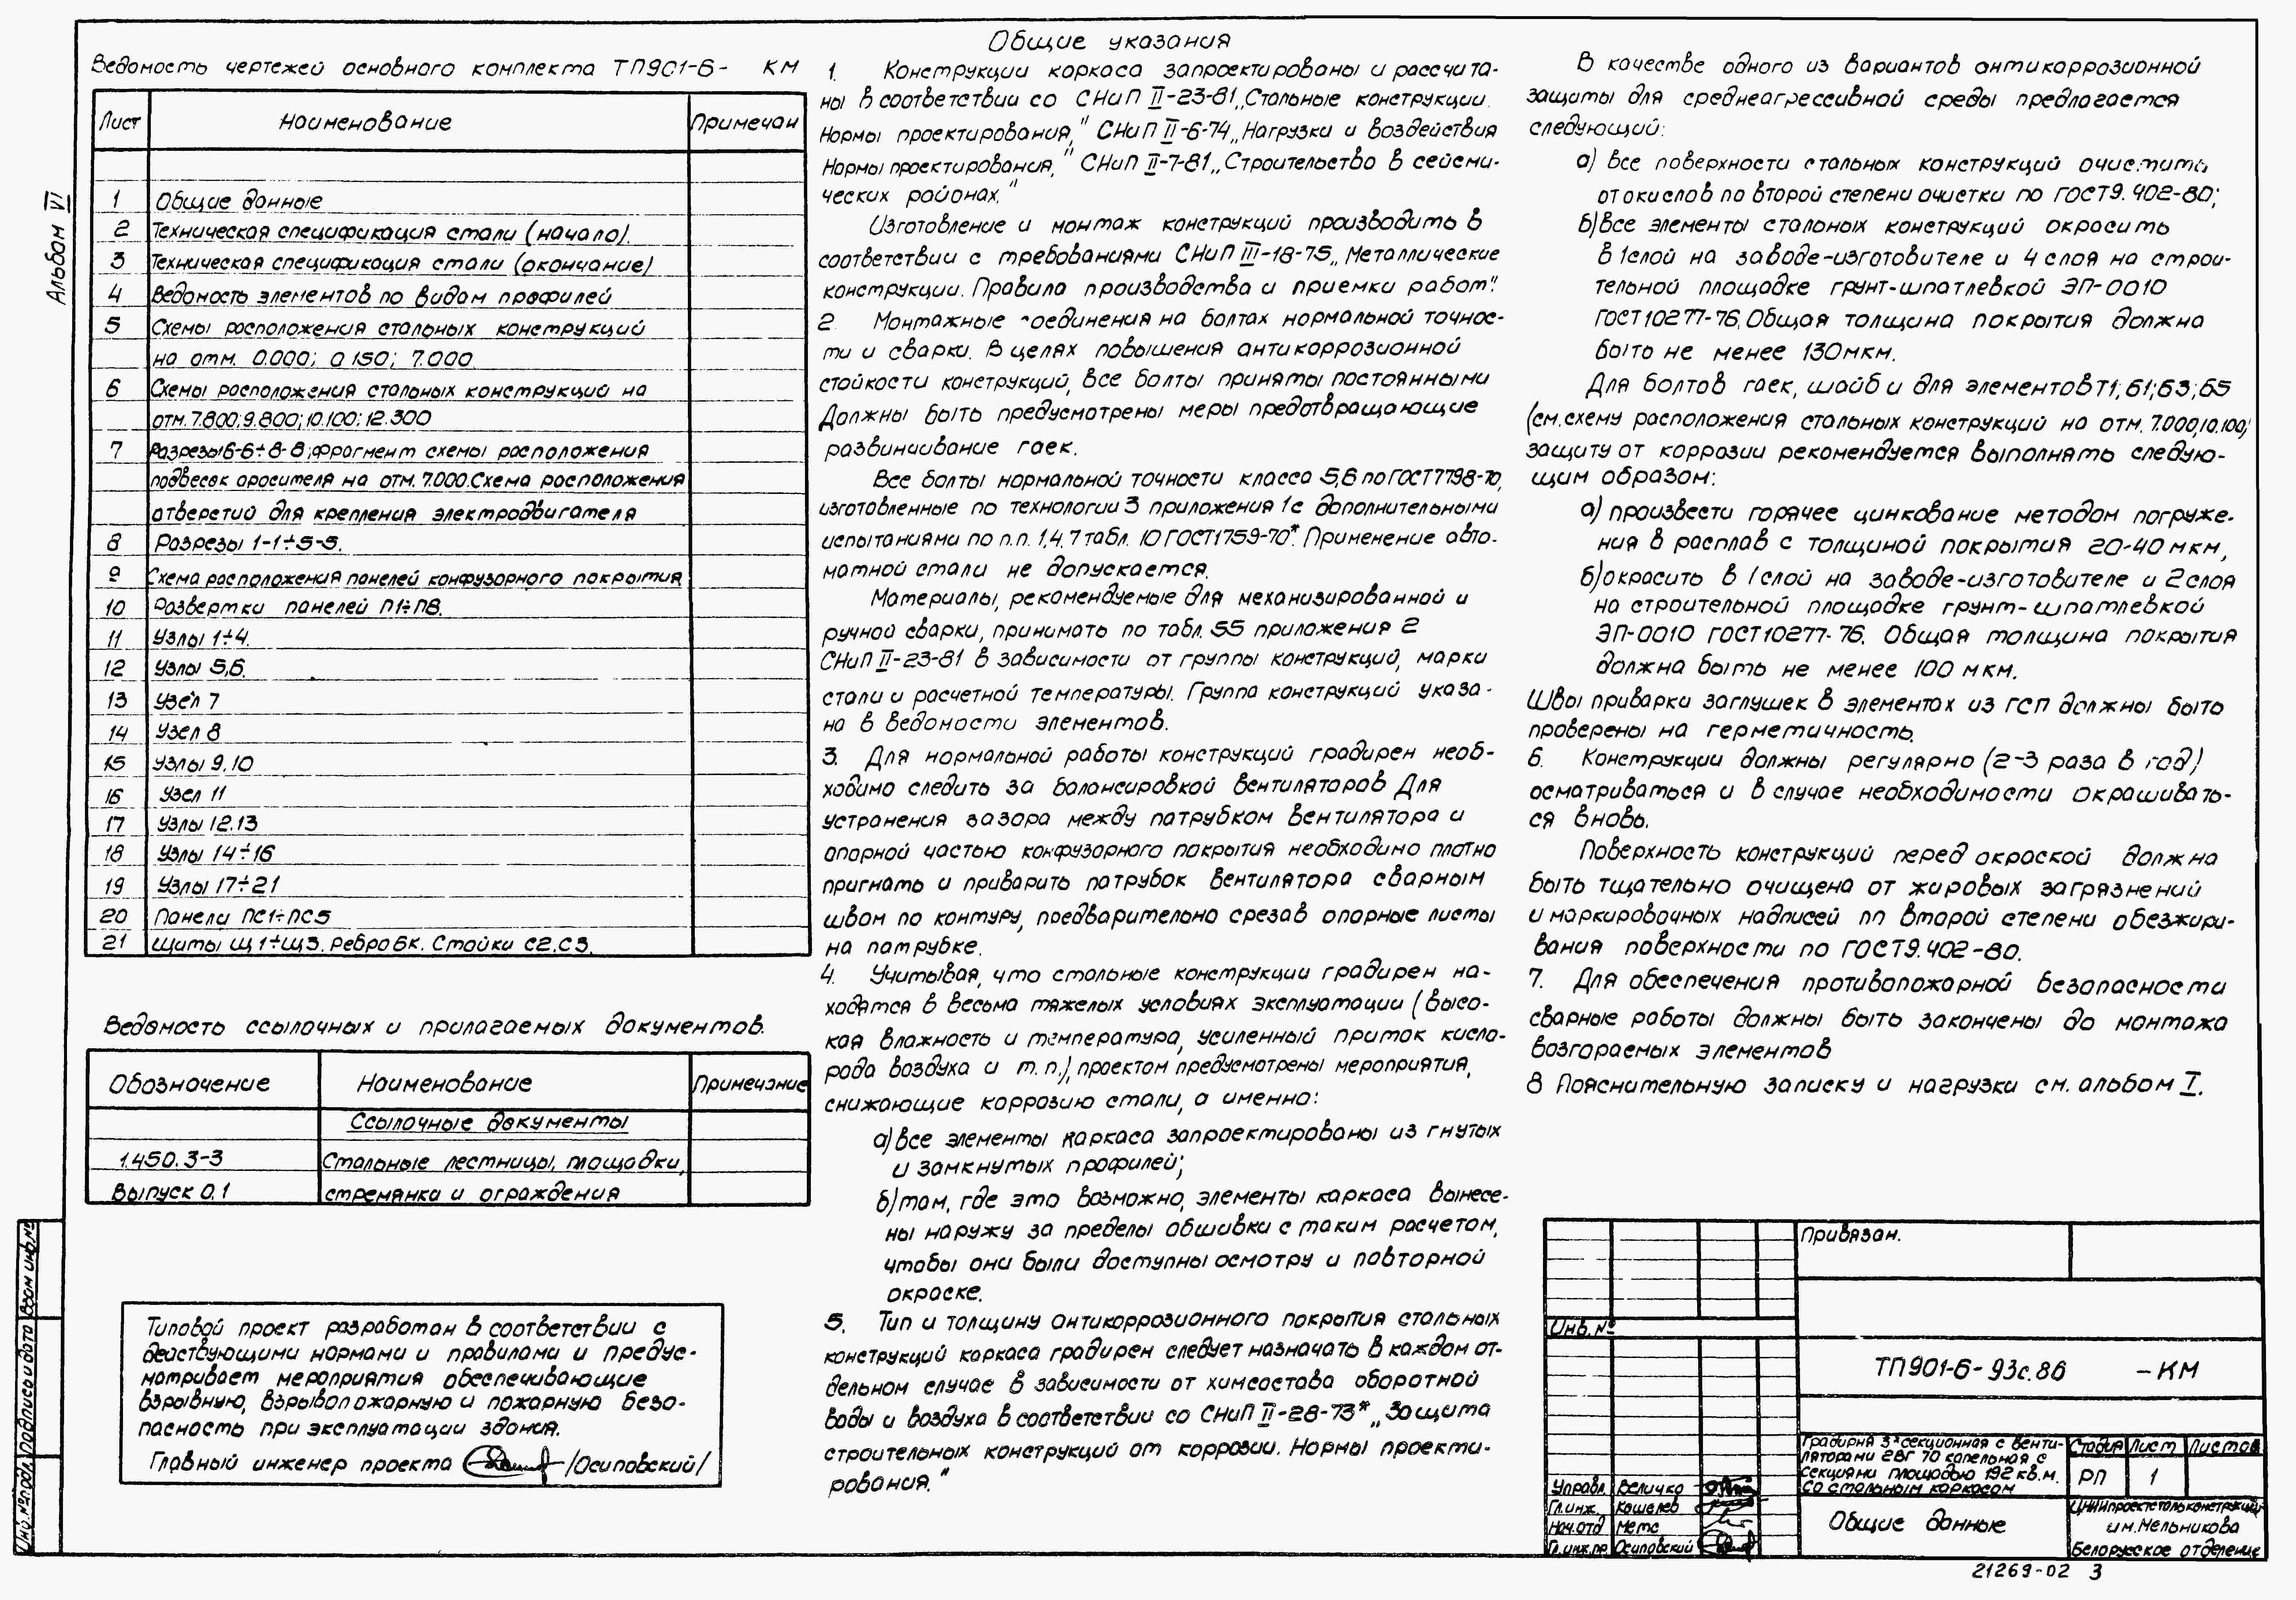 Альбом VI
Ведомость чертежей основного комплекта ТП901-6- КМ
Лист Наименование Примечан
1 Общие данные
2 Техническая спецификация стали (начало).
3 Техническая спецификация стали (окончание)
4 Ведомость элементов по видам профилей
5 Схемы расположения стальных конструкций
на отм. 0.000; 0.150; 7.000
6 Схемы расположения стальных конструкций на
отм. 7.800; 9.800; 10.100; 12.300
7 Разрезы 6-6÷8-8; фрагмент схемы расположения
подвесок оросителя на отм. 7.000. Схема расположения
отверстий для крепления электродвигателя
8 Разрезы 1-1÷5-5.
9 Схема расположения панелей конфузорного покрытия
10 Развертки панелей П1÷П8.
11 Узлы 1÷4.
12 Узлы 5,6.
13 Узел 7
14 Узел 8
15 Узлы 9,10
16 Узел 11
17 Узлы 12.13
18 Узлы 14÷16
19 Узлы 17÷21
20 Панели ПС1÷ПС5
21 Щиты Щ1÷Щ3. Ребро БК. Стойки С2.С3.
Ведомость ссылочных и прилагаемых документов.
Обозначение Наименование Примечание
Ссылочные документы
1.450.3-3 Стальные лестницы, площадки,
Выпуск 0.1 стремянки и ограждения
Типовой проект разработан в соответствии с
действующими нормами и правилами и предус-
матривает мероприятия обеспечивающие
взрывную, взрывопожарную и пожарную безо-
пасность при эксплуатации здания.
Главный инженер проекта /Осиповский/
Общие указания
1. Конструкции каркаса запроектированы и рассчита-
ны в соответствии со СНиП II-23-81 „Стальные конструкции.
Нормы проектирования," СНиП II-6-74 „Нагрузки и воздействия
Нормы проектирования," СНиП II-7-81 „Строительство в сейсми-
ческих районах."
Изготовление и монтаж конструкций производить в
соответствии с требованиями СНиП III-18-75 „Металлические
конструкции. Правила производства и приемки работ".
2. Монтажные соединения на болтах нормальной точнос-
ти и сварки. В целях повышения антикоррозионной
стойкости конструкций, все болты приняты постоянными
Должны быть предусмотрены меры предотвращающие
развинчивание гаек.
Все болты нормальной точности класса 5,6 по ГОСТ7798-70,
изготовленные по технологии 3 приложения 1 с дополнительными
испытаниями по п.п. 1,4,7 табл. 10 ГОСТ1759-70*. Применение авто-
матной стали не допускается.
Материалы, рекомендуемые для механизированной и
ручной сварки, принимать по табл. 55 приложения 2
СНиП II-23-81 в зависимости от группы конструкций, марки
стали и расчетной температуры. Группа конструкций указа-
на в ведомости элементов.
3. Для нормальной работы конструкций градирен необ-
ходимо следить за балансировкой вентиляторов Для
устранения зазора между патрубком вентилятора и
опорной частью конфузорного покрытия необходимо плотно
пригнать и приварить патрубок вентилятора сварным
швом по контуру, предварительно срезав опорные листы
на патрубке.
4. Учитывая, что стальные конструкции градирен на-
ходятся в весьма тяжелых условиях эксплуатации (высо-
кая влажность и температура, усиленный приток кисло-
рода воздуха и т.п.), проектом предусмотрены мероприятия,
снижающие коррозию стали, а именно:
а) все элементы каркаса запроектированы из гнутых
и замкнутых профилей;
б) там, где это возможно, элементы каркаса вынесе-
ны наружу за пределы обшивки с таким расчетом,
чтобы они были доступны осмотру и повторной
окраске.
5. Тип и толщину антикоррозионного покрытия стальных
конструкций каркаса градирен следует назначать в каждом от-
дельном случае в зависимости от химсостава оборотной
воды и воздуха в соответствии со СНиП II-28-73* „Защита
строительных конструкций от коррозии. Нормы проекти-
рования."
В качестве одного из вариантов антикоррозионной
защиты для среднеагрессивной среды предлагается
следующий:
а) все поверхности стальных конструкций очистить
от окислов по второй степени очистки по ГОСТ9.402-80;
б) все элементы стальных конструкций окрасить
в 1слой на заводе-изготовителе и 4 слоя на строи-
тельной площадке грунт-шпатлевкой ЭП-0010
ГОСТ10277-76. Общая толщина покрытия должна
быть не менее 130мкм.
Для болтов гаек, шайб и для элементов Т1; 61; 63; 65
(см. схему расположения стальных конструкций на отм. 7.000; 10.100)
защиту от коррозии рекомендуется выполнять следую-
щим образом:
а) произвести горячее цинкование методом погруже-
ния в расплав с толщиной покрытия 20-40 мкм,
б) окрасить в 1 слой на заводе-изготовителе и 2 слоя
на строительной площадке грунт-шпатлевкой
ЭП-0010 ГОСТ10277-76. Общая толщина покрытия
должна быть не менее 100 мкм.
Швы приварки заглушек в элементах из ГСП должны быть
проверены на герметичность.
6. Конструкции должны регулярно (2-3 раза в год)
осматриваться и в случае необходимости окрашивать-
ся вновь.
Поверхность конструкций перед окраской должна
быть тщательно очищена от жировых загрязнений
и маркировочных надписей по второй степени обезжири-
вания поверхности по ГОСТ9.402-80.
7. Для обеспечения противопожарной безопасности
сварные работы должны быть закончены до монтажа
возгораемых элементов
8 Пояснительную записку и нагрузки см. альбом I.
Привязан.
Инв. №
ТП901-6-93с.86 -КМ
Градирня 3х секционная с венти-
ляторами 2ВГ 70 капельная с
секциями площадью 192 кв.м.
Со стальным каркасом
Стадия Лист Листов
РП 1
Управл. Величко
Гл.инж. Кошелев
Нач.отд Метс
Гл.инж.пр. Осиповский
Общие данные
ЦНИИпроектстальконструкция
им. Мельникова
Белорусское отделение
Инв.№ подл. Подпись и дата Взам инв.№
21269-02 3